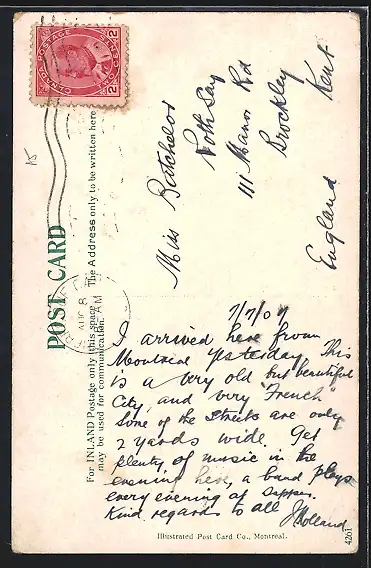 CANADA POSTAGE
2 CENTS 2
TWO CENTS
15
POST CARD
For INLAND Postage only this space
may be used for communication.
The Address only to be written here
AUG 8
AM
Miss Batchelor
North Say
111 Manor Rd
Brockley
Kent
England
7/7/07
I arrived here from
Montreal yesterday. This
is a very old but beautiful
City, and very "French"
Some of the streets are only
2 yards wide. Get
plenty of music in the
evening here, a band plays
every evening at supper.
Kind regards to all J Holland
Illustrated Post Card Co., Montreal.
4261